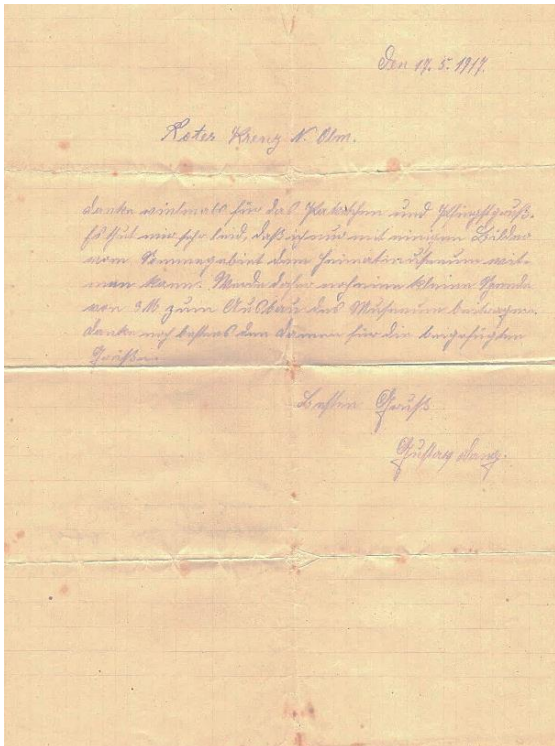 Den 17. 5. 1917.
Rotes Kreuz N. Olm.
Danke vielmals für das Paketchen und Pfingstgruß.
Es thut mir sehr leid, daß ich nur mit einigen Bilder
vom Sommegebiet dem Heimatmuseum
kann. Werde daher noch eine kleine Spende
von 3 M zum Ausbau des Museum beitragen.
Danke noch bestens den Damen für die beigefügten
Grüße.
Besten Gruß
Gustav Lang.